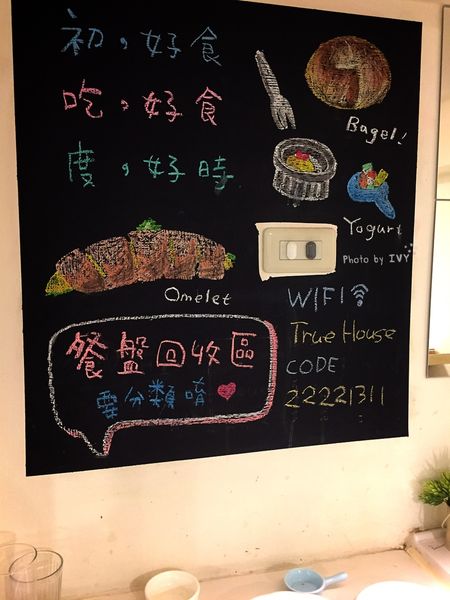 初，好食
吃，好食
度，好時
Bagel!
Yogurt
Photo by IVY
Omelet
WIFI
True House
CODE
22221311
餐盤回收區
要分類唷